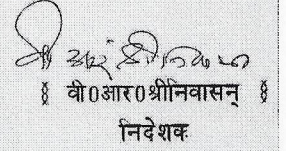 वी0आर0श्रीनिवासन्
निदेशक